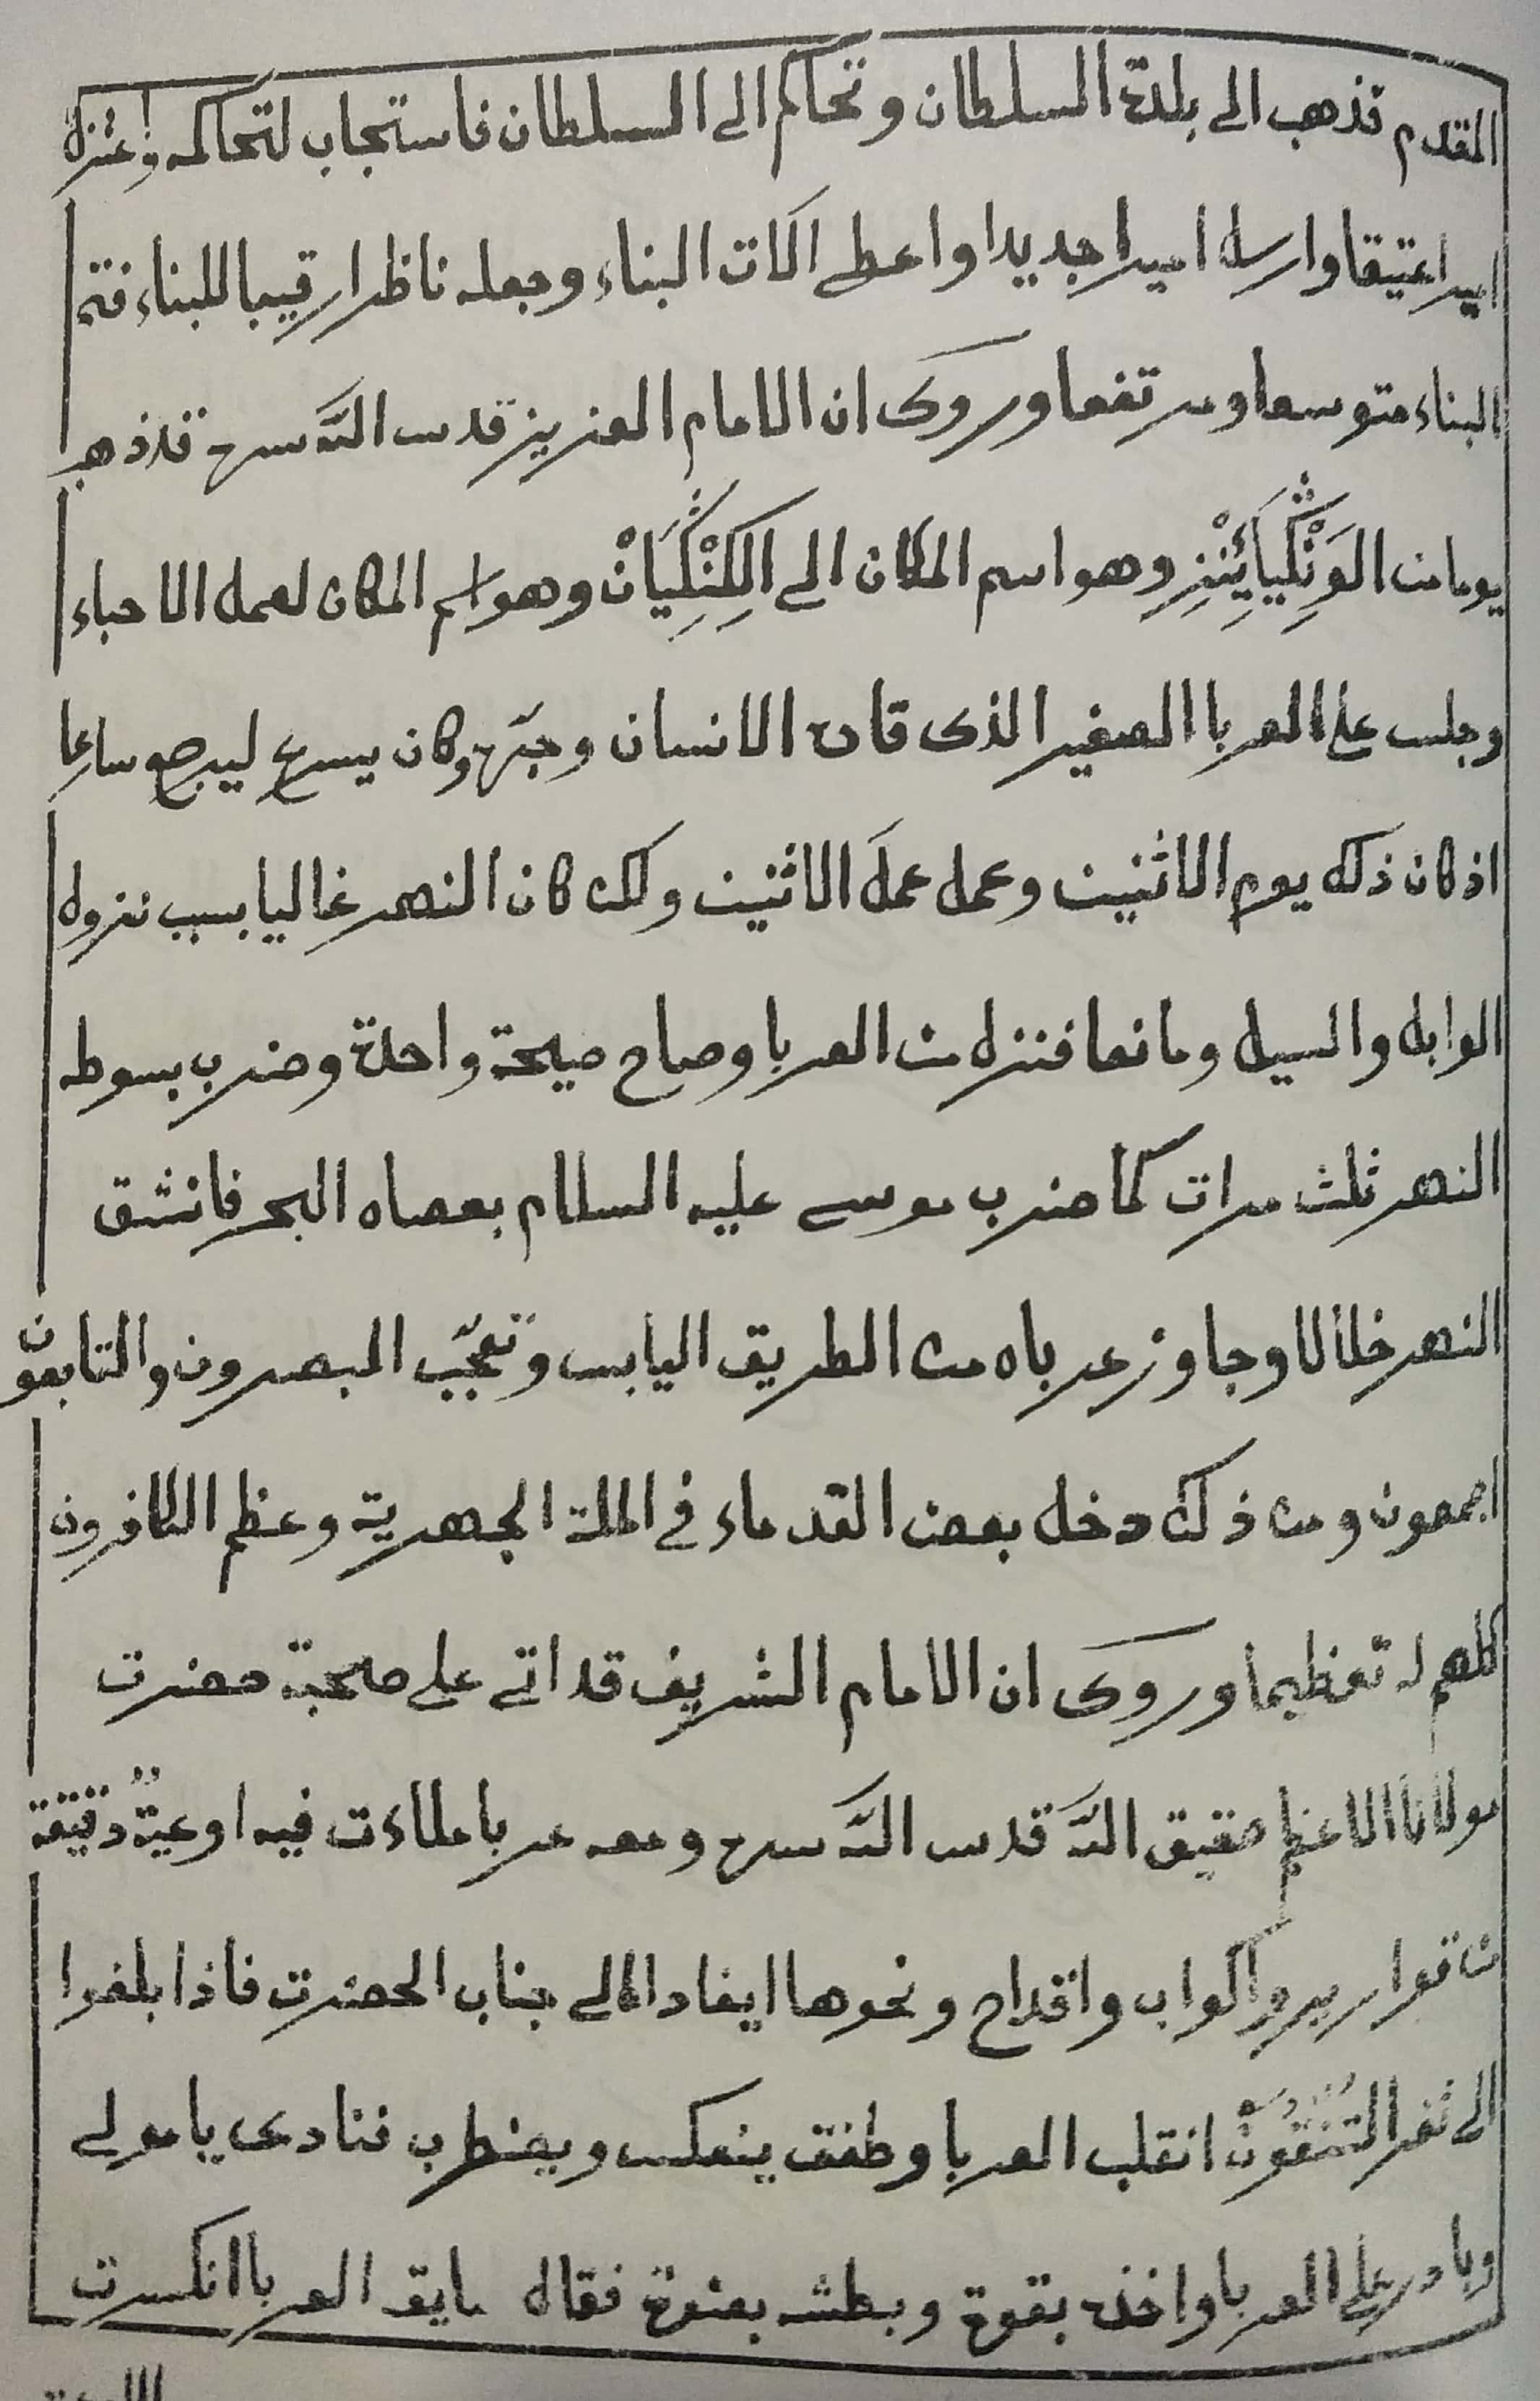 المقدم فذهب الى بلدة السلطان وتحاكم الى السلطان فاستجاب لتحاكمه واعنزل
اميرا عتيقا وارسل اميرا جديدا واعطى الات البناء وجعله ناظرا رقيبا للبناء فتم
البناء متوسعا ومرتفعا وروى ان الامام العزيز قدس اللّه سره قد ذهب
يوما من وهو اسم المكان الى وهو اسم المكان لعمل الاحباء
وجلس على العربا الصغير الذى قاده الانسان وجرّه وكان يسرع ليرجع سارعا
اذ كان ذلك يوم الاثنين وعمل عملَ الاثنين ولكن كان النهر غاليا بسبب نزول
الوابل والسيل ومانعا فنزل من العربا وصاح صيحة واحدة وضرب بسوطه
النهر ثلث مرات كما ضرب موسى عليه السلام بعصاه البحر فانشق
النهر خلالا وجاوز عرباه من الطريق اليابس وتعجّب المبصرون والتابعون
اجمعون ومن ذلك دخل بعض القدماء فى الملة الجهرية وعظم الكافرون
كلهم له تعظيما وروى ان الامام الشريف قد اتى على صحبة حضرت
مولانا الاعظم حقيق اللّه قدس اللّه سره ومعه عربا ملاءت فيه اوعيةٌ دقيقة
من قوارير واكواب واقداح ونحوها ايفادا الى جناب الحضرت فاذا بلغوا
الى ثغر انقلب العربا وطفق ينعكس ويضطرب فنادى يا مولى
وبادر على العربا واخذه بقوة وبطشه بعنوة فقال العربا انكسرت